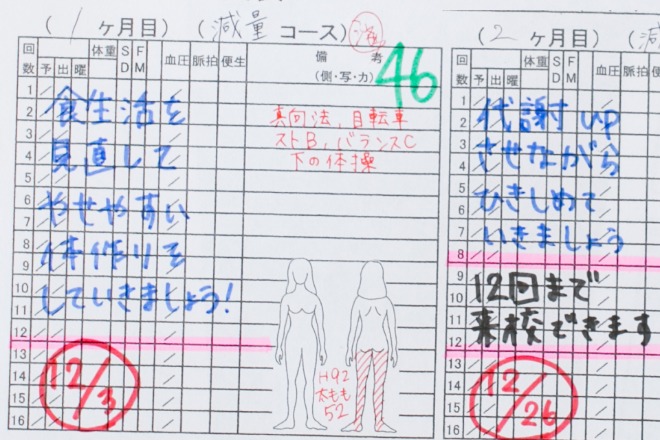 (1ヶ月目) (減量コース)
回数 予 出 曜 体重 SD FM 血圧 脈拍 便生 備考 (側・写・力)
46
1
2
3
4
5
6
7
8
9
10
11
12
13
14
15
16
食生活を
見直して
やせやすい
体作りを
していきましょう!
12/3
真向法、自転車
ストB、バランスC
下の体操
H92
太もも
52
(2ヶ月目) (減
回数 予 出 曜 体重 SD FM 血圧 脈拍 便生
1
2
3
4
5
6
7
8
9
10
11
12
13
14
15
16
代謝up
させながら
ひきしめて
いきましょう
12回まで
来校できます
12/26